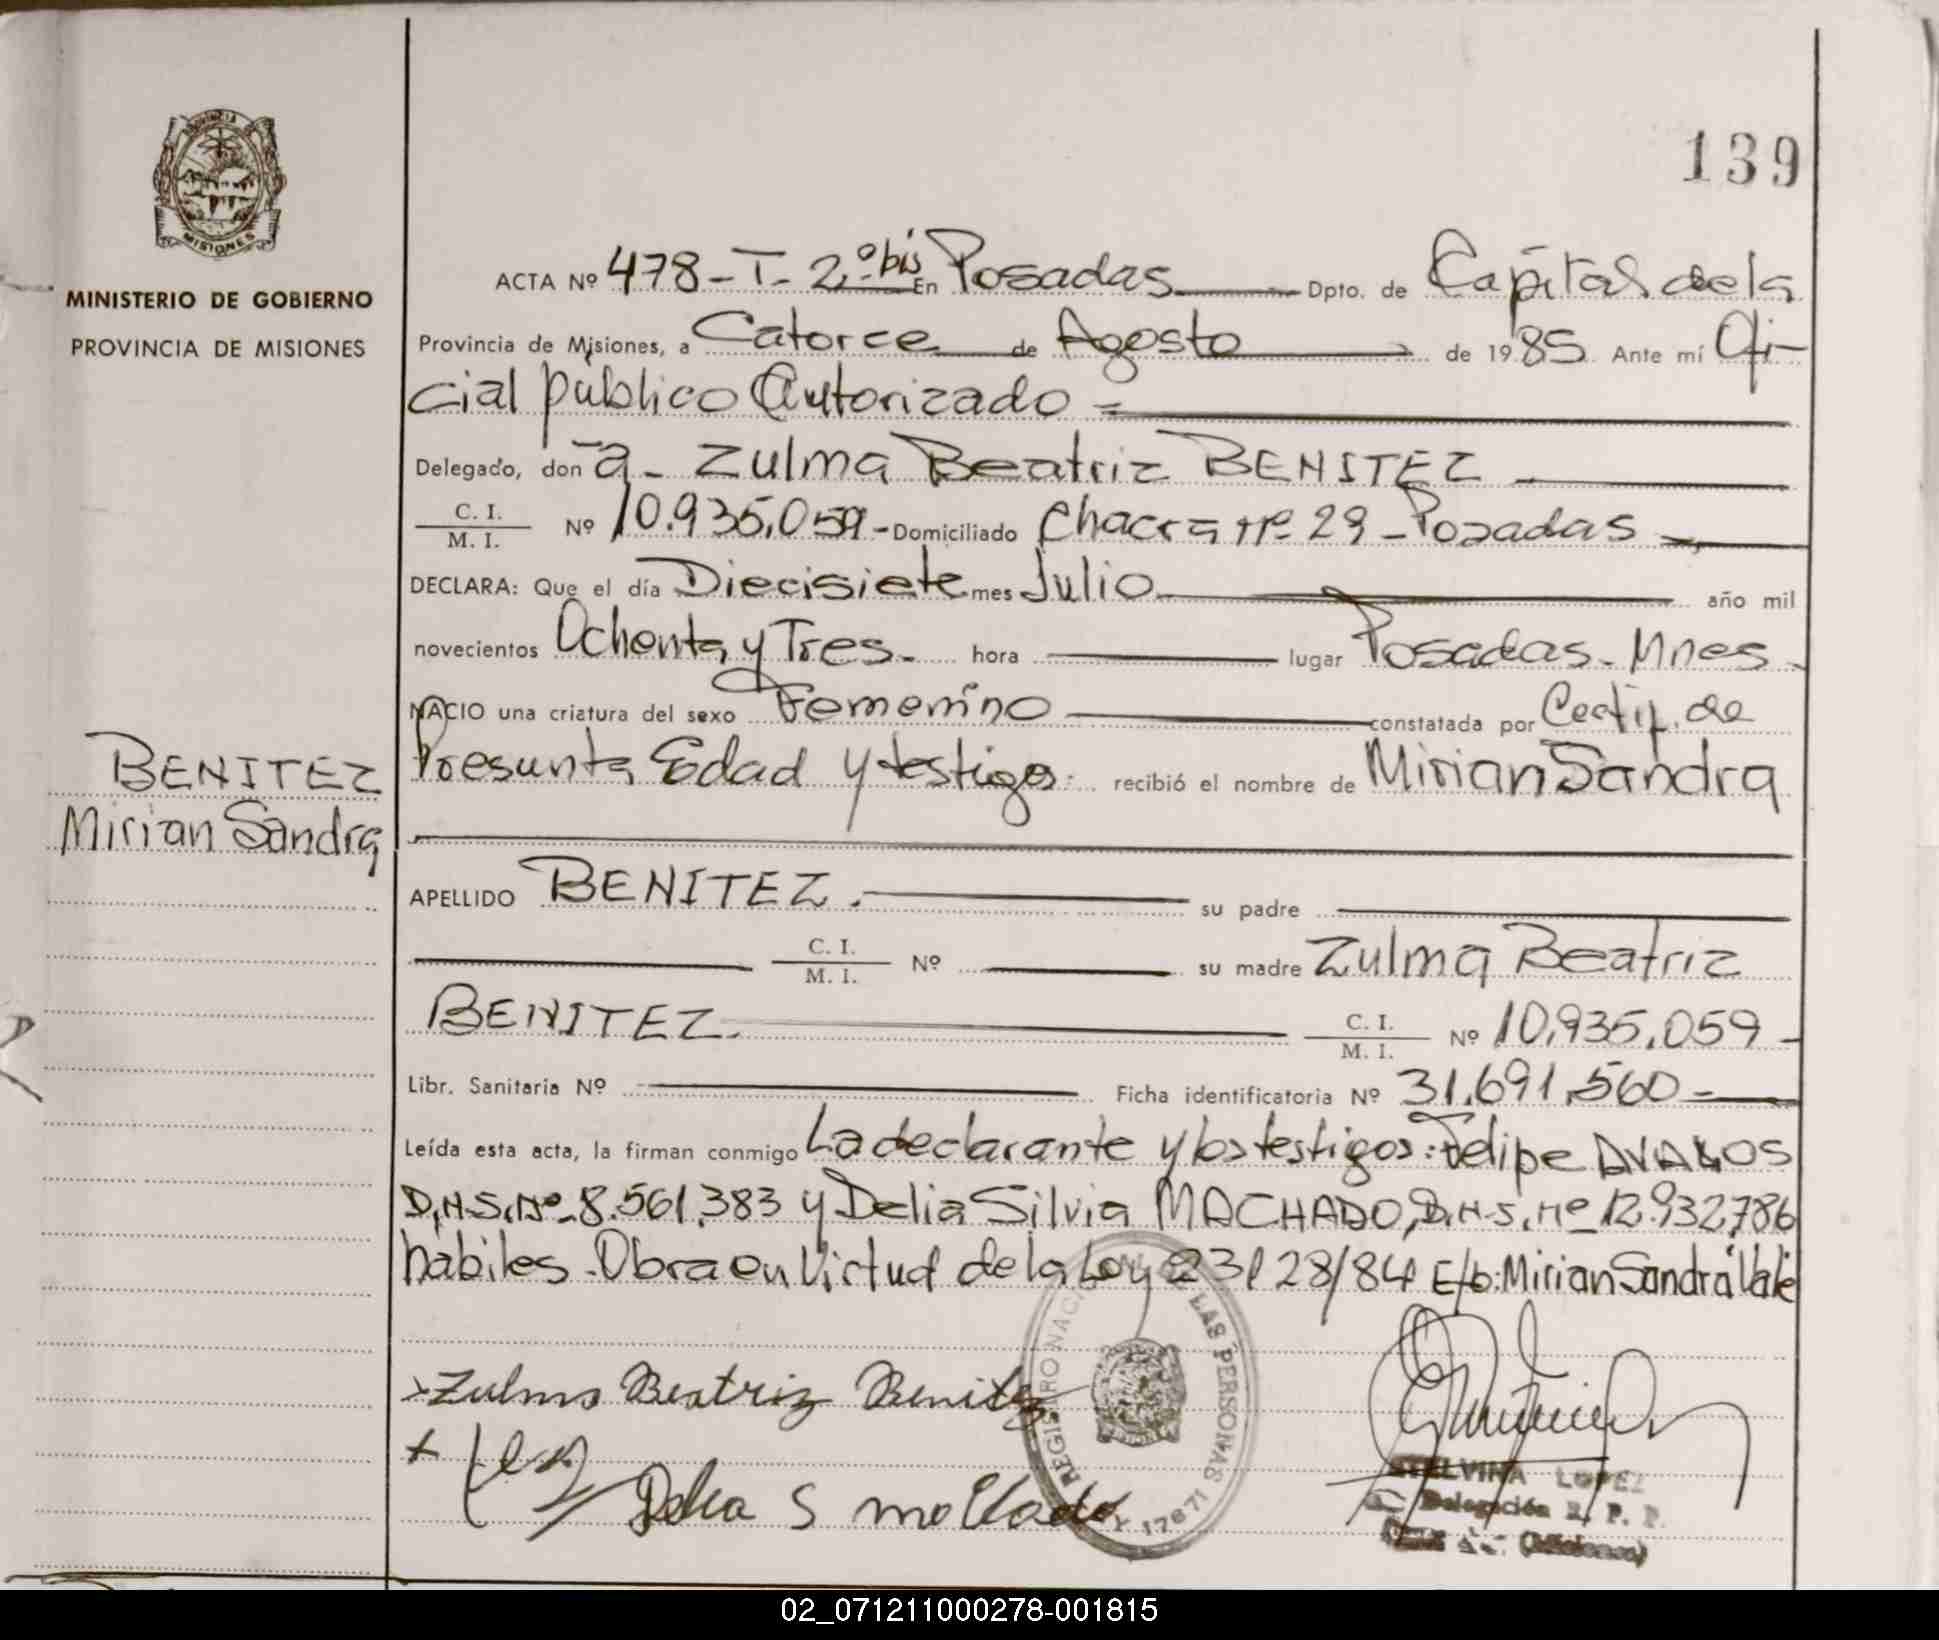 139
PROVINCIA DE
MISIONES
MINISTERIO DE GOBIERNO
PROVINCIA DE MISIONES
ACTA Nº 478-T-2º bis En Posadas Dpto. de Capital de la
Provincia de Misiones, a Catorce de Agosto de 1985 Ante mí Ofi-
cial público Autorizado =
Delegado, don a - Zulma Beatriz BENITEZ
C. I.
M. I. Nº 10.935,059 - Domiciliado Chacra Nº 29 - Posadas
DECLARA: Que el día Diecisiete mes Julio año mil
novecientos Ochenta y Tres - hora lugar Posadas - Mnes
NACIO una criatura del sexo Femenino constatada por Certif. de
Presunta Edad y testigos: recibió el nombre de Mirian Sandra
BENITEZ
Mirian Sandra
APELLIDO BENITEZ. su padre
C. I.
M. I. Nº su madre Zulma Beatriz
BENITEZ. C. I.
M. I. Nº 10,935,059 -
Libr. Sanitaria Nº Ficha identificatoria Nº 31,691,560 -
Leída esta acta, la firman conmigo La declarante y los testigos: Felipe AVALOS
D.N.I. Nº 8.561,383 y Delia Silvia MACHADO, D.N.I. Nº 12.932,786
habiles - Obra en Virtud de la Ley 23128/84 E/b: Mirian Sandra Vale
Zulma Beatriz Benitez
Delia S
REGISTRO NACIONAL DE LAS PERSONAS
LEY 17671
STELVINA LOPEZ
Delegación R. P. P.
(Misiones)
02_071211000278-001815